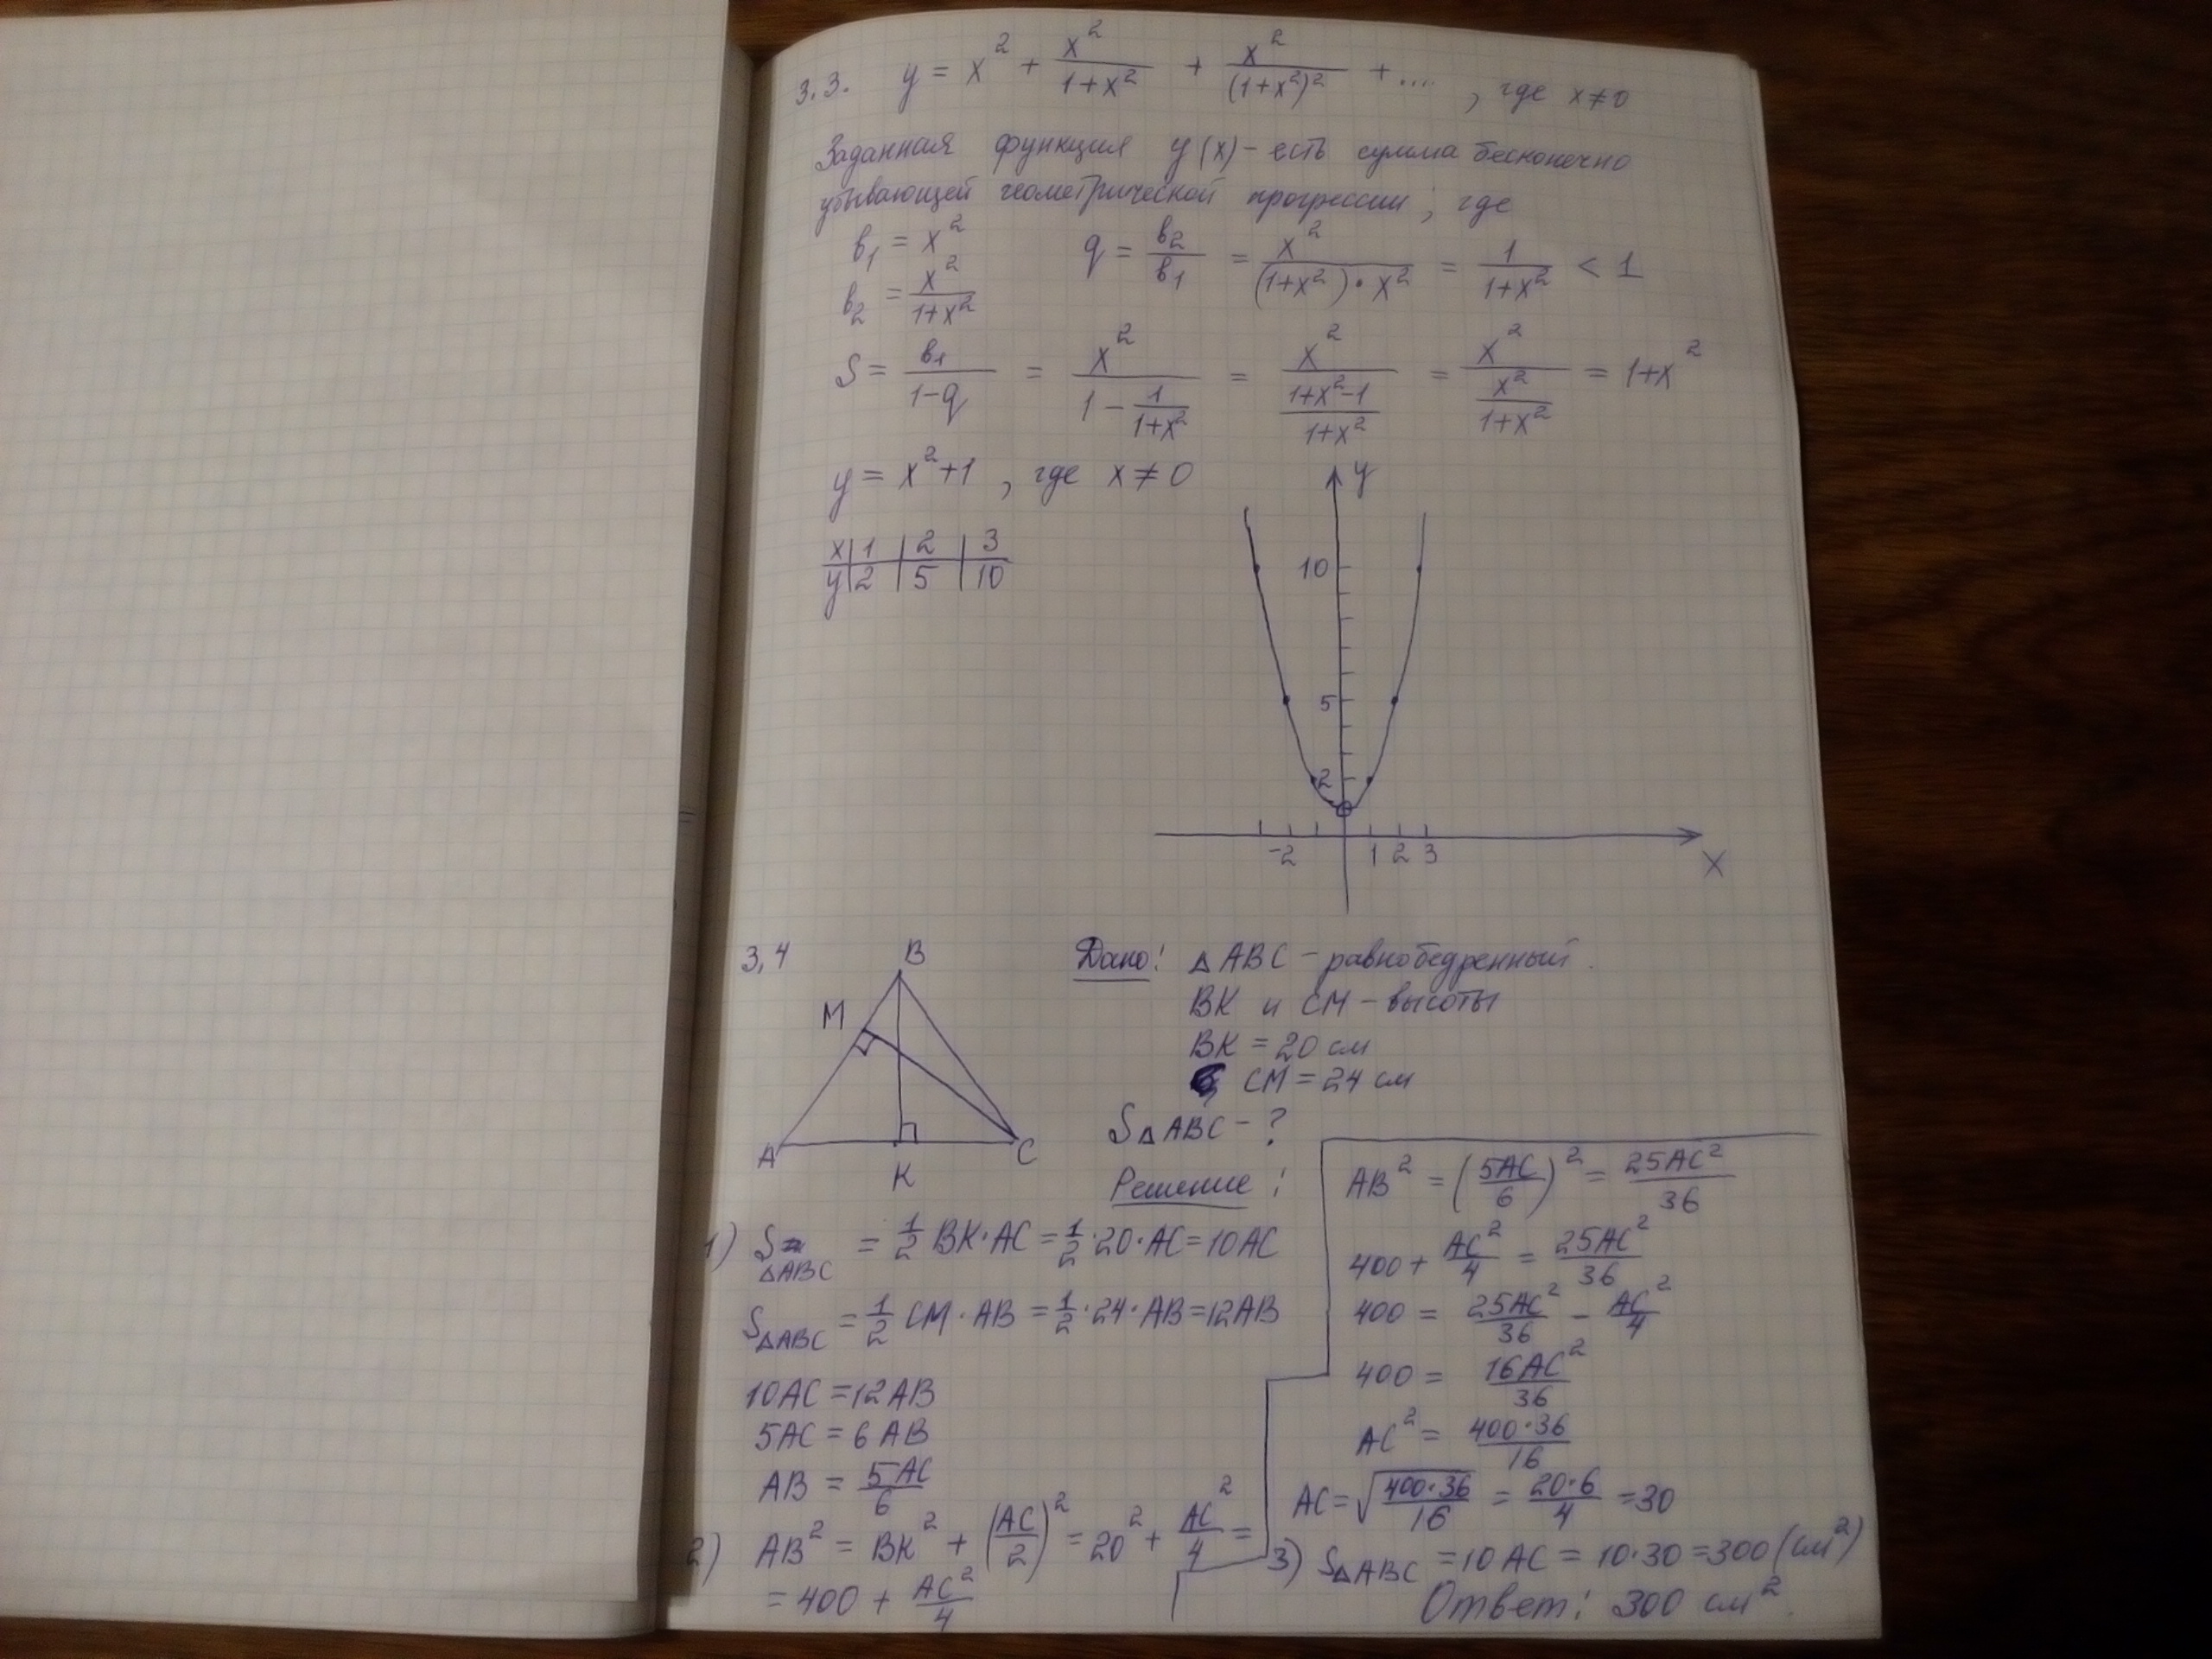 3.3. y = x² + x²/(1+x²) + x²/(1+x²)² + .... , где x≠0
Заданная функция y(x) - есть сумма бесконечно
убывающей геометрической прогрессии, где
b₁ = x²
q = b₂/b₁ = x²/((1+x²)·x²) = 1/(1+x²) < 1
b₂ = x²/(1+x²)
S = b₁/(1-q) = x²/(1 - 1/(1+x²)) = x²/((1+x²-1)/(1+x²)) = x²/(x²/(1+x²)) = 1+x²
y = x²+1 , где x ≠ 0
x | 1 | 2 | 3
y | 2 | 5 | 10
y
10
5
2
-2 1 2 3
x
3,4
B
M
A
K
C
Дано: △ABC - равнобедренный.
BK и CM - высоты
BK = 20 см
CM = 24 см
S△ABC - ?
Решение:
1) S△ABC = 1/2 BK·AC = 1/2·20·AC = 10AC
S△ABC = 1/2 CM·AB = 1/2·24·AB = 12AB
10AC = 12AB
5AC = 6AB
AB = 5AC/6
2) AB² = BK² + (AC/2)² = 20² + AC²/4 =
= 400 + AC²/4
AB² = (5AC/6)² = 25AC²/36
400 + AC²/4 = 25AC²/36
400 = 25AC²/36 - AC²/4
400 = 16AC²/36
AC² = 400·36/16
AC = √(400·36/16) = 20·6/4 = 30
3) S△ABC = 10AC = 10·30 = 300 (см²)
Ответ: 300 см².